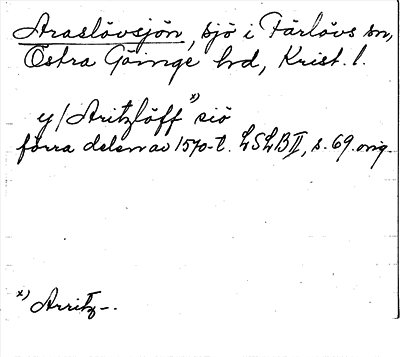 Araslövsjön, sjö i Färlövs sn,
Östra Göinge hd, Krist. l.
y/Aritzlöff x) siö
förra delen av 1570-t. LSLB II, s. 69. orig.
x) Arritz-.